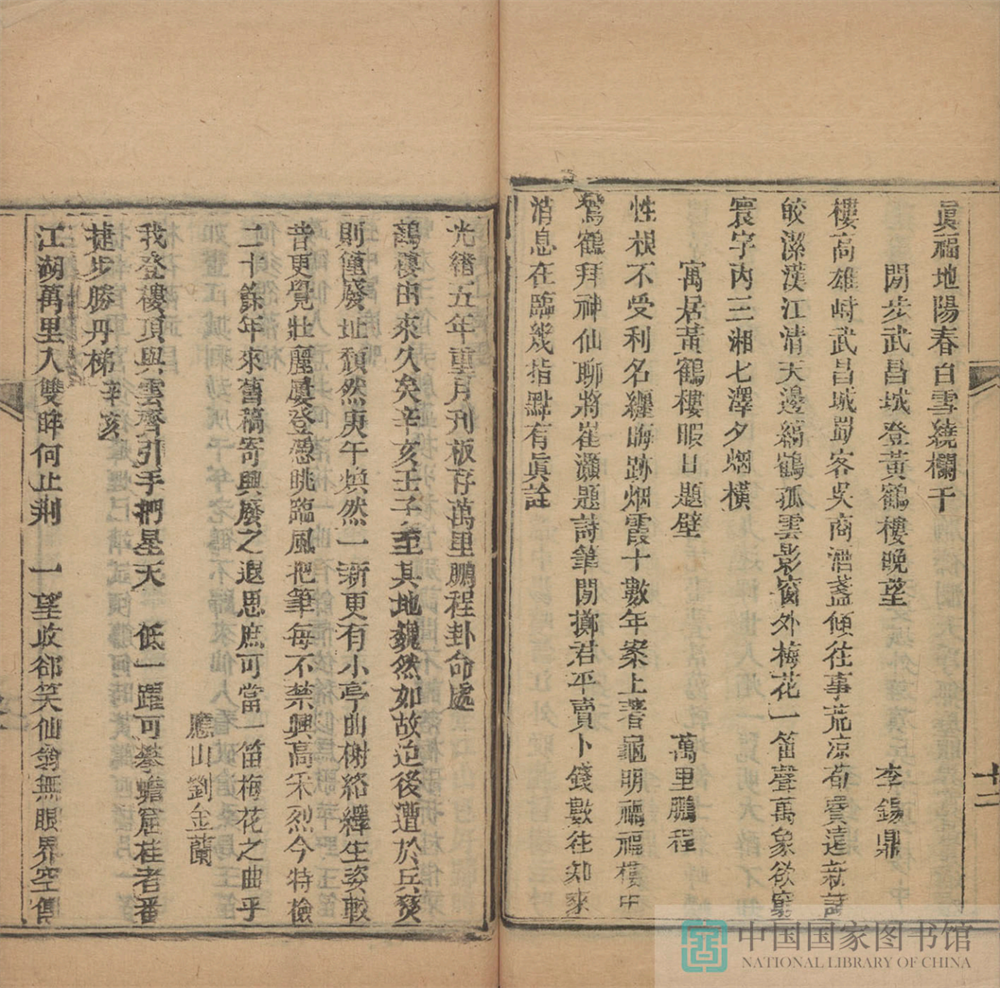 眞福地陽春白雪繞欄干
閒步武昌城登黃鶴樓晚望 李錫鼎
樓高雄峙武昌城蜀客吳商酒盞傾往事荒凉都賓遠新詩
皎潔漢江清天邊縞鶴孤雲影窗外梅花一笛聲萬象欲窮
寰宇內三湘七澤夕烟橫
寓居黃鶴樓暇日題壁 萬里鵬程
性根不受利名纒晦跡烟霞十數年案上蓍龜明禍福樓中
鸞鶴拜神仙聊將崔灝題詩筆閒擲君平賣卜錢數往知來
消息在臨幾指點有眞詮
十二
光緖五年重月刊板存萬里鵬程卦命處
鶴樓由來久矣辛亥壬子至其地巍然如故迫後遭於兵燹
則僅廢址頹然庚午煥然一新更有小亭曲榭絡繹生姿較
昔更覺壯麗屢登憑眺臨風把筆每不禁興高采烈今特檢
二十餘年來舊稿寄興廢之遐思庶可當一笛梅花之曲乎
應山劉金蘭
我登樓頂與雲齊引手捫星天 低一躍可攀蟾窟桂者番
捷步勝丹梯 辛亥
江湖萬里入雙眸何止荆 一望收郤笑仙翁無眼界空傳
中国国家图书馆
NATIONAL LIBRARY OF CHINA